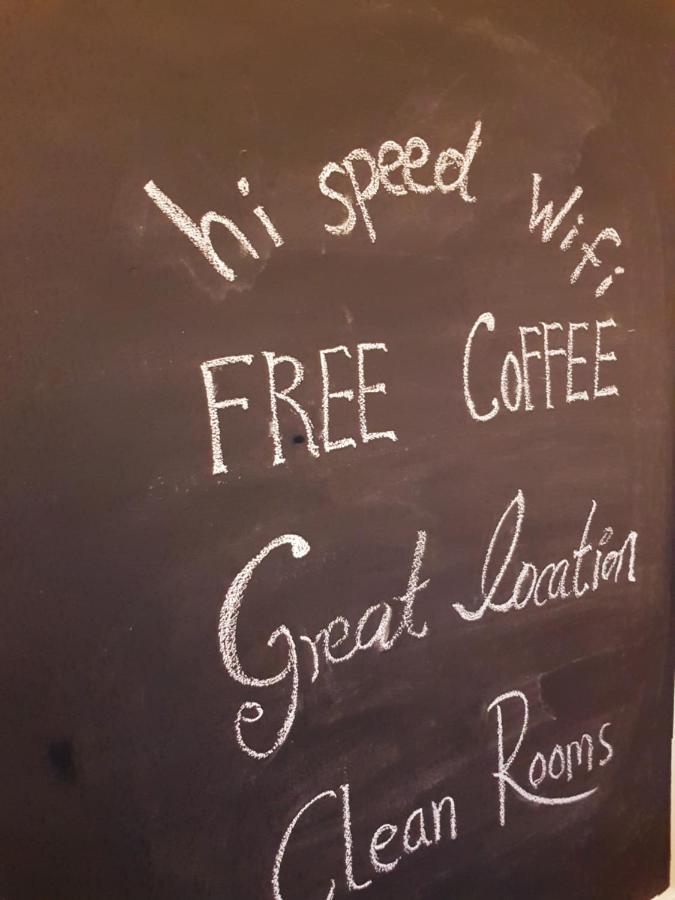 hi speed Wifi
FREE COFFEE
Great location
Clean Rooms